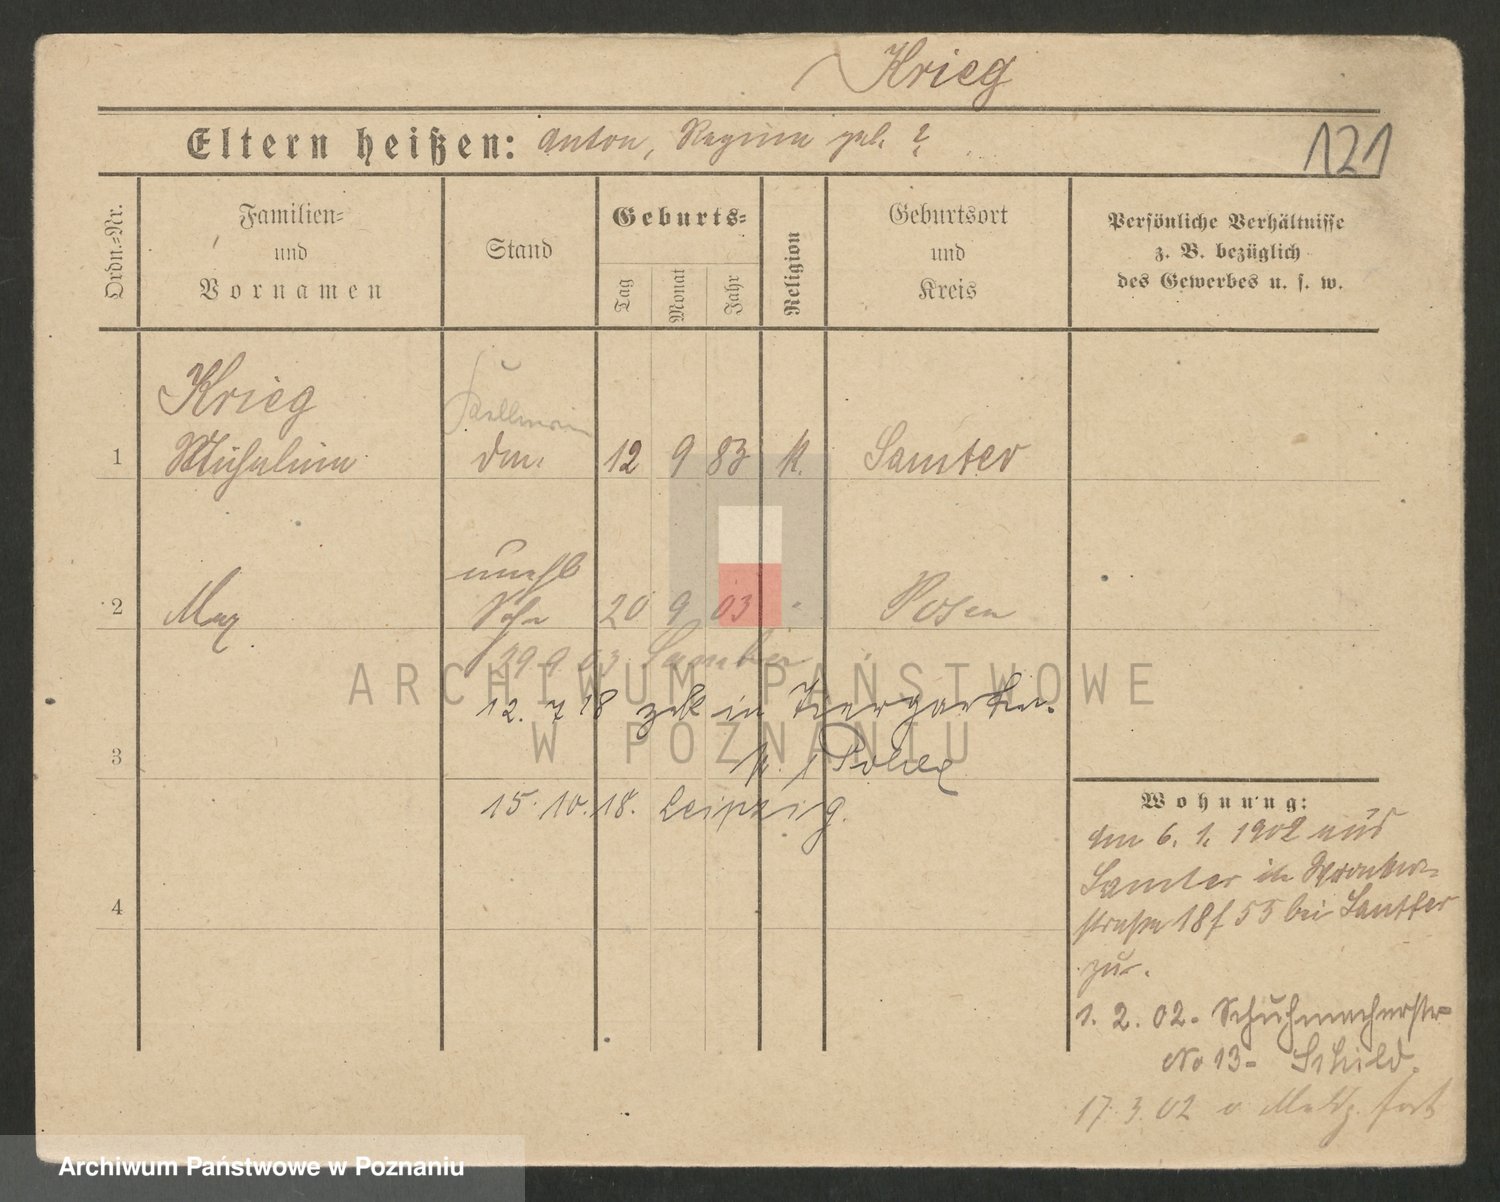 Krieg
Eltern heißen: Anton, Regina geb. ?
121
Ordn.-Nr.
Familien-
und
Vornamen
Stand
Geburts-
Tag
Monat
Jahr
Religion
Geburtsort
und
Kreis
Persönliche Verhältnisse
z. B. bezüglich
des Gewerbes u. s. w.
Krieg
1 12 9 83 k. Samter
unehl
2 Max Sohn 20 9 03 " Posen
29 9 03 Samter
12. 7 18 zrk in Tiergarten.
3
15. 10. 18. Leipzig.
4
Wohnung:
am 6. 1. 1902 aus
Samter in Wronker-
straße 18 f 55 bei
zur.
1. 2. 02 - Schuhmacherstr
No 13 - Schild.
17. 3. 02 v. Meldg. fort
ARCHIWUM PAŃSTWOWE
W POZNANIU
Archiwum Państwowe w Poznaniu